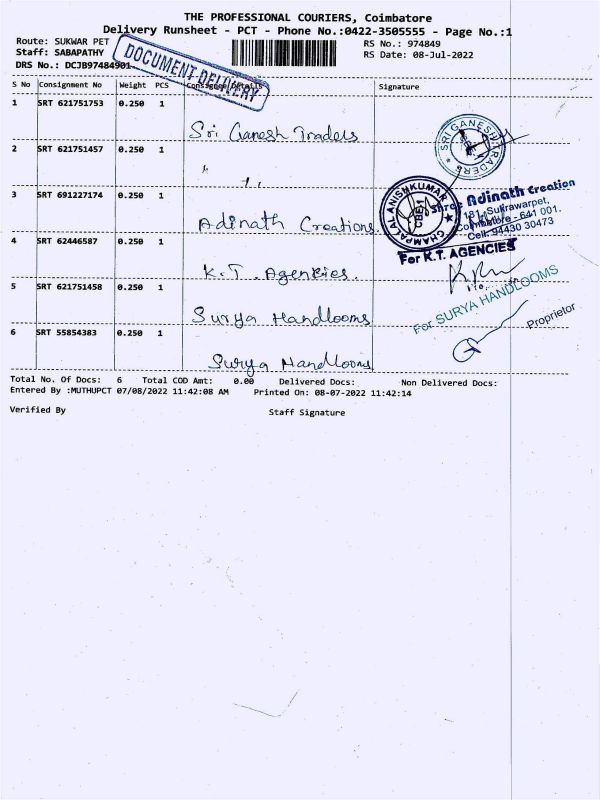 THE PROFESSIONAL COURIERS, Coimbatore
Delivery Runsheet - PCT - Phone No.:0422-3505555 - Page No.:1
Route: SUKWAR PET
RS No.: 974849
Staff: SABAPATHY
RS Date: 08-Jul-2022
DRS No.: DCJB97484901
DOCUMENT DELIVERY
S No Consignment No Weight PCS Consignee Details Signature
1 SRT 621751753 0.250 1
Sri Ganesh Traders
SRI GANESH TRADERS
2 SRT 621751457 0.250 1
" "
3 SRT 691227174 0.250 1
Adinath Creations
CHAMPALAL ANISHKUMAR
CBE-1
Shree Adinath Creation
181, Sukrawarpet,
Coimbatore - 641 001.
Cell: 94430 30473
4 SRT 62446587 0.250 1
K.T. Agencies.
For K.T. AGENCIES
5 SRT 621751458 0.250 1
Surya Handlooms
For SURYA HANDLOOMS
Proprietor
6 SRT 55854383 0.250 1
Surya Handlooms
Total No. Of Docs: 6 Total COD Amt: 0.00 Delivered Docs: Non Delivered Docs:
Entered By :MUTHUPCT 07/08/2022 11:42:08 AM Printed On: 08-07-2022 11:42:14
Verified By Staff Signature